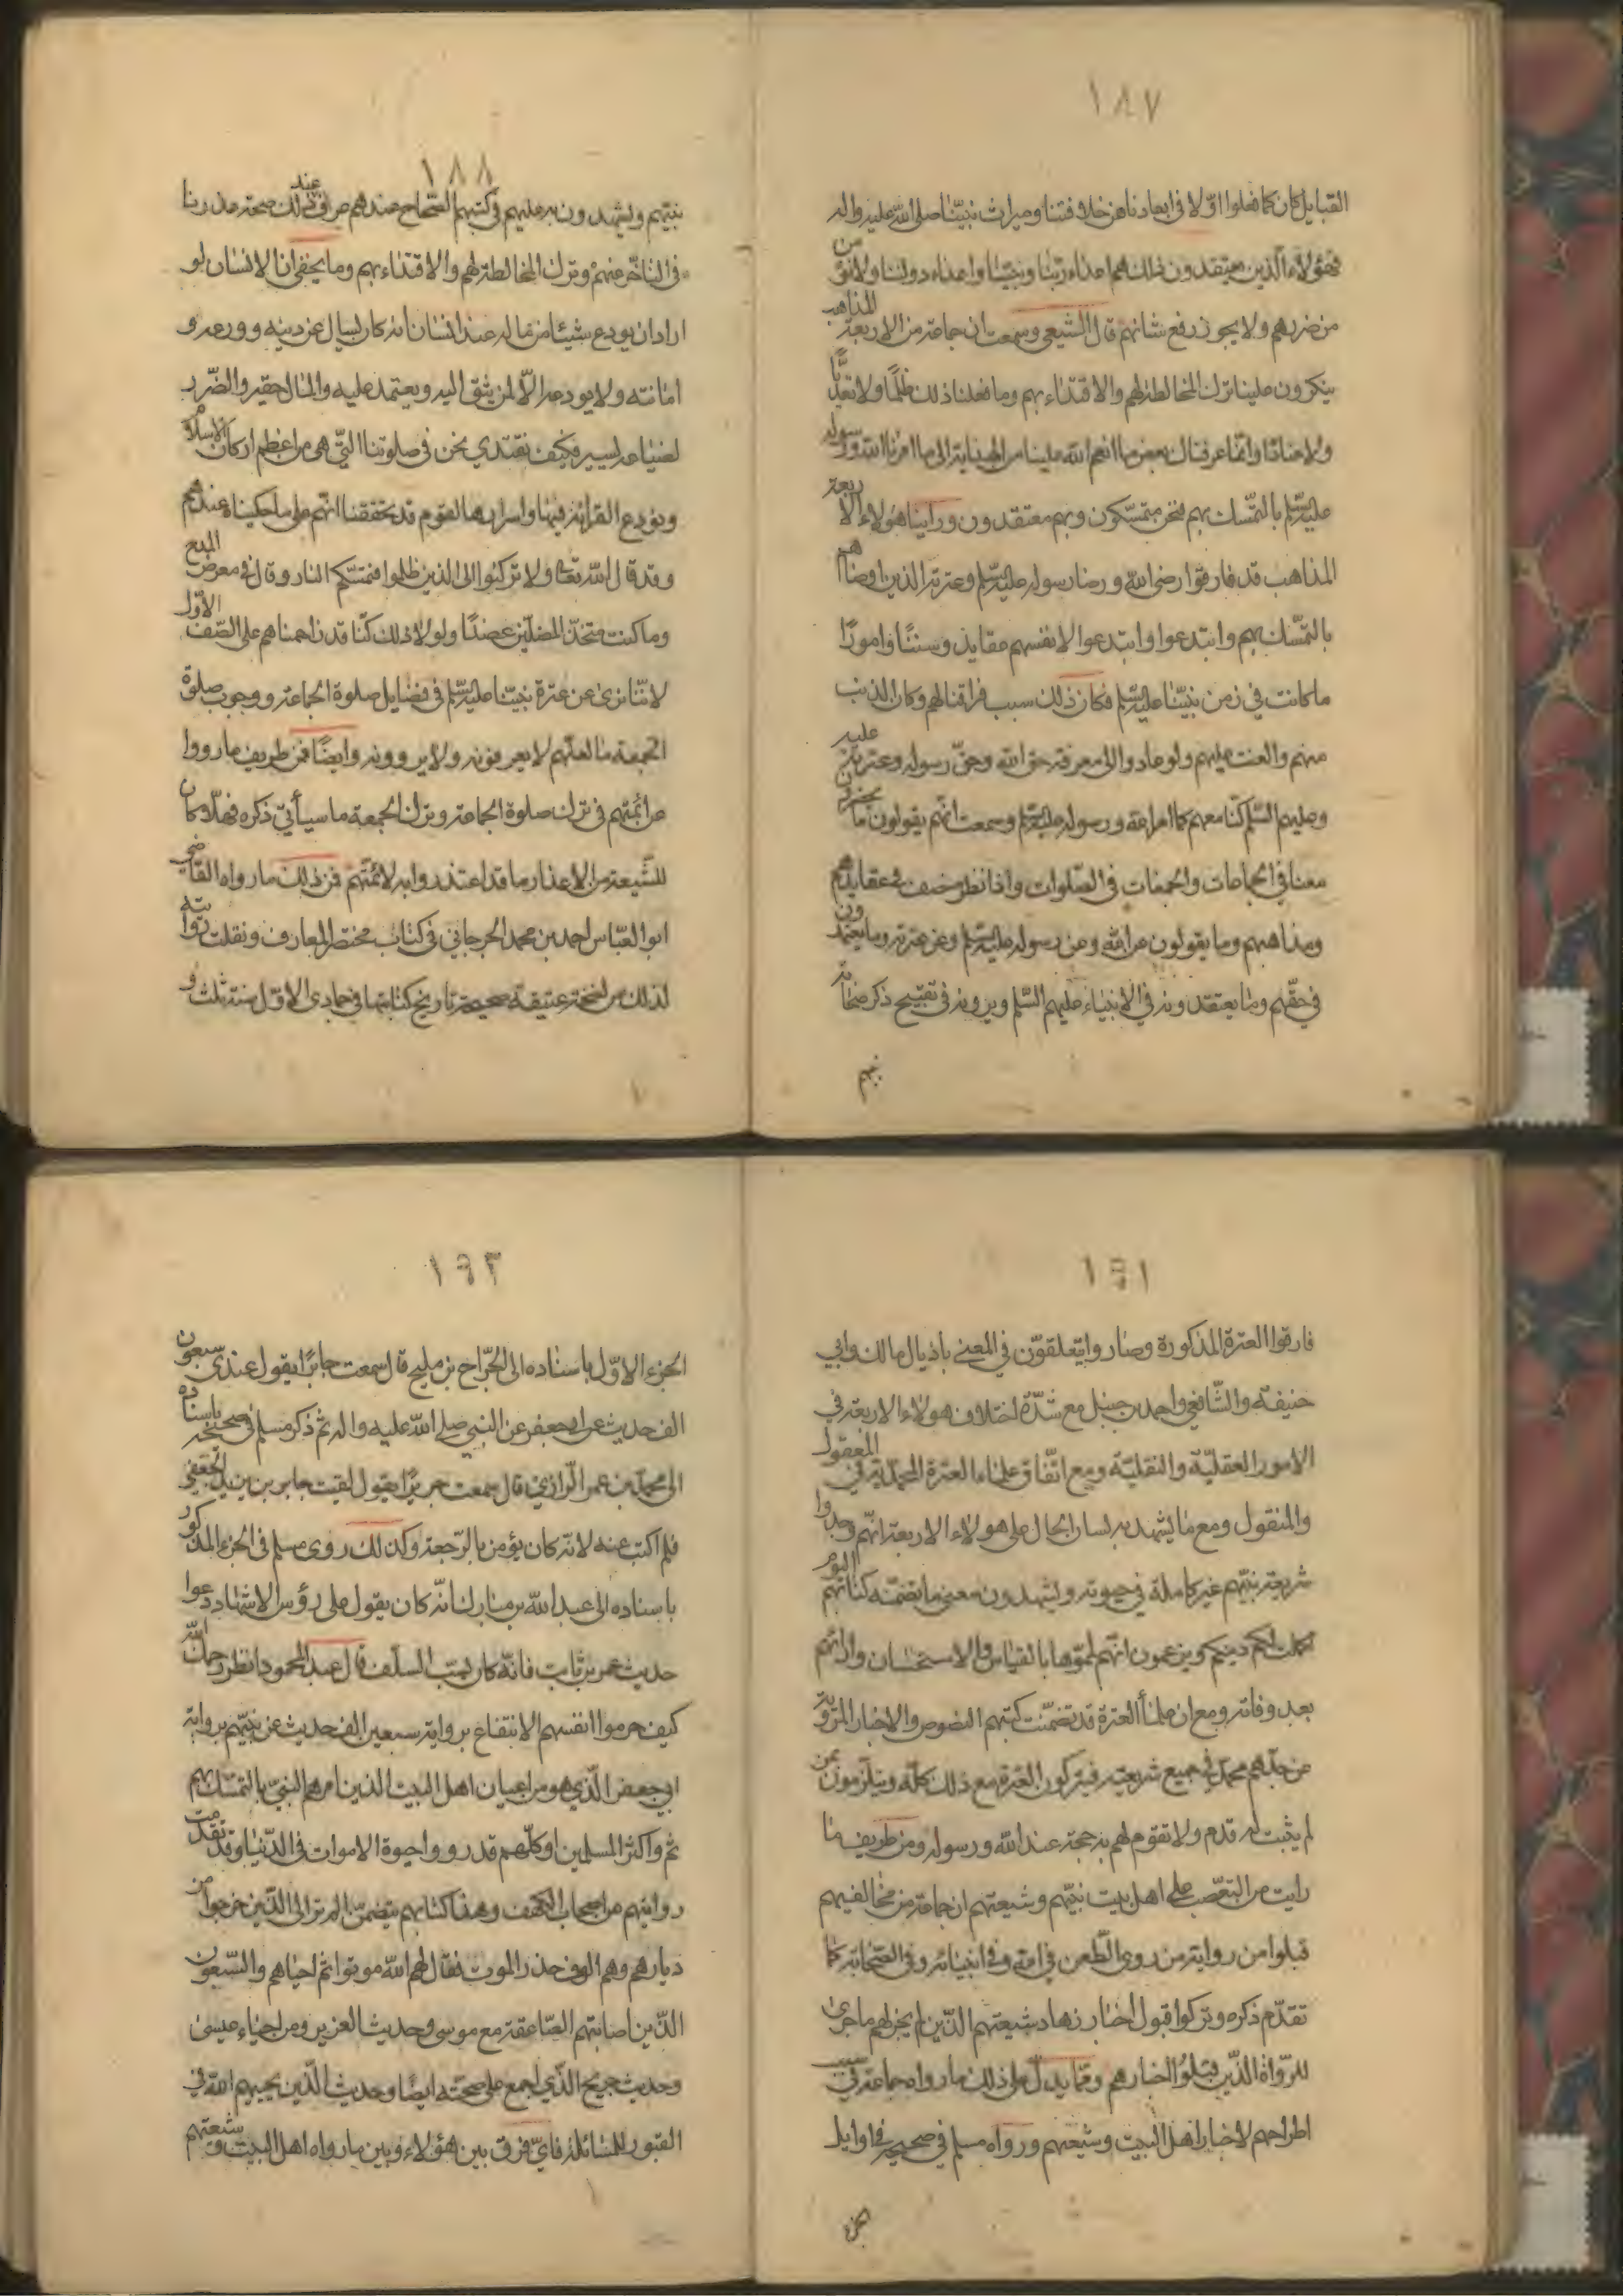 ١٨٧
القبايل كان كما فعلوا اوّلا في ابعادنا عن خلافتنا وميراث نبيّنا صلى الله عليه واله
فهؤلاء الّذين يعتقدون ذلك هم اعداء ربّنا ونبيّنا واعداء دولنا ولا نقى من
من ضررهم ولا يجوز رفع شانهم قال الشيعي وسمعت ان جماعة من الاربعة المذاهب
ينكرون علينا ترك المخالطة لهم والاقتداء بهم وما فعلنا ذلك ظلمًا ولا تعدّيًا
ولا عنادًا وانّما عرفناك بعض ما انعم الله علينا من الهداية الى ما امرنا الله ورسوله
عليه السّلم بالتمسّك بهم فنحن متمسّكون وبهم معتقدون وراينا هؤلاء الاربعة
المذاهب قد فارقوا رضى الله ورضا رسوله عليه السّلم وعترته الذين اوصاهم
بالتمسّك بهم وابتدعوا وابتدعوا لانفسهم عقايد وسننًا وامورًا
ما كانت في زمن نبيّنا عليه السّلم فكان ذلك سبب فراقنا لهم وكان الذنب
منهم والعنت عليهم ولو عادوا الى معرفة حق الله وحقّ رسوله وعترته عليه
وعليهم السّلم كنّا معهم كما امر الله ورسوله عليه السّلم وسمعت انّهم يقولون ما يحضرون
معنا في الجماعات والجمعات في الصّلوات واذا نظر منصف في عقايدهم
ومذاهبهم وما يقولون عن الله وعن رسوله عليه السّلم وعن عترته وما يعتمدون
في حقّهم وما يعتقدونه في الانبياء عليهم السّلم ويروونه في تقبيح ذكر صحابة
نبيهم
١٨٨
نبيّهم ويشهدون به عليهم في كتبهم الصّحاح عندهم عرف عند ذلك صحة عذرنا
في التاخّر عنهم وترك المخالطة لهم والاقتداء بهم وما يخفى انّ الانسان لو
اراد ان يودع شيئا من ماله عند انسان انه كان يسال عن دينه وورعه و
امانته ولا يودعه الّا لمن يثق اليه ويعتمد عليه والمال حقير والضّرر
لضياعه يسير فكيف نقتدي نحن في صلوتنا الّتي هي من اعظم اركان الاسلام
ونودع القرائة فيها واسرارها لقوم قد تحققنا انّهم على ما حكيناه عندهم
وقد قال الله تعا ولا تركنوا الى الذين ظلموا فتمسّكم النار وقال في معرض المدح
وما كنت متخذ المضلّين عضدًا ولولا ذلك كنّا قد زاحمناهم على الصّف الاوّل
لانّنا نروى عن عترة نبيّنا عليه السّلم في فضايل صلوة الجماعة ووجوب صلوة
الجمعة ما لعلّهم لا يعرفونه ولا يروونه وايضًا فمن طريف ما رووا
عن ائمّتهم في ترك صلوة الجماعة وترك الجمعة ما سيأتي ذكره فهلّا كان
للشّيعة من الاعذار ما قد اعتذروا به لائمّتهم فمن ذلك ما رواه القاضي
ابو العبّاس احمد بن محمد الجرجاني في كتاب مختصر المعارف ونقلت روايته
لذلك من نسخة عتيقة صحيحة تاريخ كتابتها في جمادى الاوّل سنة ثلث و
١٩١
فارقوا العترة المذكورة وصاروا يتعلّقون في المعنى باذيال مالك وابي
حنيفة والشّافعي واحمد بن حنبل مع شدّة اختلاف هولاء الاربعة في
الامور العقليّة والنقليّة ومع اتّفاق علماء العترة المحمّديّة في المعقول
والمنقول ومع ما يشهد به لسان الحال على هولاء الاربعة انّهم وجدوا
شريعة نبيّهم غير كاملة في حيوته ويشهدون معنى ما تضمّنه كتابهم اليوم
اكملت لكم دينكم ويزعمون انّهم تمّموها بالقياس والاستحسان وارائهم
بعد وفاته ومع ان علماء العترة قد تضمّنت كتبهم النصوص والاخبار المرويّة
عن جدّهم محمّد في جميع شريعته فيتركون العترة مع ذلك كلّه ويتلزمون بمن
لم يثبت له قدم ولا تقوم لهم به حجة عند الله ورسوله ومن طريف ما
رايت من التعصّب على اهل بيت نبيّهم وشيعتهم ان جماعة من مخالفيهم
قبلوا من رواية من روى الطّعن في الله وفي انبيائه وفي الصّحابة كما
تقدّم ذكره وتركوا قبول اخبار زهاد شيعتهم الّذين لم يجر لهم ما جرى
للرّواة الذّين قبلوُا اخبارهم وممّا يدلّ على ذلك ما رواه جماعة في سبب
اطراحهم لاخبار اهل البيت وشيعتهم ورواه مسلم في صحيحه في اوايل
الجزء
١٩٢
الجزء الاوّل باسناده الى الجّراح بن مليح قال سمعت جابرًا يقول عندى سبعون
الف حديث عن ابي جعفر عن النبي صلى الله عليه واله ثم ذكر مسلم في صحيحه باسناده
الى محمّد بن عمر الرازي قال سمعت جريرًا يقول لقيت جابر بن يزيد الجعفي
فلم اكتب عنه لانّه كان يؤمن بالرّجعة وكذلك روى مسلم في الجزء المذكور
باسناده الى عبد الله بن مبارك انّه كان يقول على رؤس الاشهاد دعوا
حديث عمر بن ثابت فانّه كان يسب السلف قال عبد المحمود انظر رحمك الله
كيف حرموا انفسهم الانتفاع برواية سبعين الف حديث عن نبيّهم برواية
ابي جعفر الّذي هو من اعيان اهل البيت الذين امرهم النبيّ بالتمسّك بهم
ثم واكثر المسلمين او كلّهم قد رووا حيوة الاموات في الدّنيا وقد تقدمت
روايتهم عن اصحاب الكهف وهذا كتابهم يتضمّن الم تر الى الذّين خرجوا من
ديارهم وهم الوف حذر الموت فقال لهم الله موتوا ثم احياهم والسّبعون
الذّين اصابتهم الصّاعقة مع موسى وحديث العزير ومن احياء عيسى
وحديث جريح الّذي اجمع على صحّته ايضًا وحديث الّذين يحييهم الله في
القبور للمسائلة فايّ فرق بين هؤلاء وبين ما رواه اهل البيت وشيعتهم